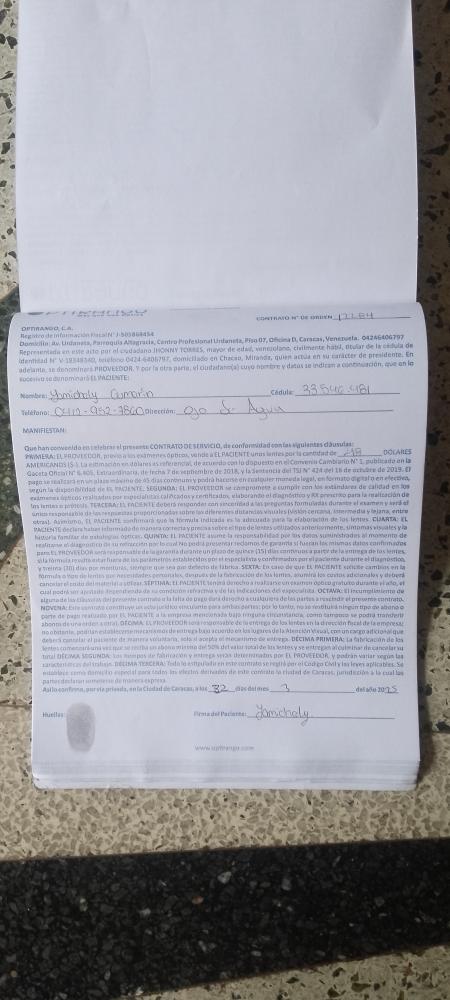 CONTRATO N° DE ORDEN 17284
OPTIRANGO, C.A.
Registro de Información Fiscal N° J-503868454
Domicilio: Av. Urdaneta, Parroquia Altagracia, Centro Profesional Urdaneta, Piso 07, Oficina D, Caracas, Venezuela. 04246406797
Representada en este acto por el ciudadano JHONNY TORRES, mayor de edad, venezolano, civilmente hábil, titular de la cédula de
identidad N° V-18348340, teléfono 0424-6406797, domiciliado en Chacao, Miranda, quien actúa en su carácter de presidente. En
adelante, se denominará EL PROVEEDOR. Y por la otra parte, el ciudadano(a) cuyo nombre y datos se indican a continuación, que en lo
sucesivo se denominará EL PACIENTE:
Nombre: Yamichaly Cumarin Cédula: 33.540.481
Teléfono: 0412-952-7860 Dirección: Ojo de Agua
MANIFIESTAN:
Que han convenido en celebrar el presente CONTRATO DE SERVICIO, de conformidad con las siguientes cláusulas:
PRIMERA: EL PROVEEDOR, previo a los exámenes ópticos, vende a EL PACIENTE unos lentes por la cantidad de DÓLARES
AMERICANOS ($-). La estimación en dólares es referencial, de acuerdo con lo dispuesto en el Convenio Cambiario N° 1, publicado en la
Gaceta Oficial N° 6.405, Extraordinaria, de fecha 7 de septiembre de 2018, y la Sentencia del TSJ N° 424 del 16 de octubre de 2019. El
pago se realizará en un plazo máximo de 45 días continuos y podrá hacerse en cualquier moneda legal, en formato digital o en efectivo,
según la disponibilidad de EL PACIENTE. SEGUNDA: EL PROVEEDOR se compromete a cumplir con los estándares de calidad en los
exámenes ópticos realizados por especialistas calificados y certificados, elaborando el diagnóstico y RX prescrito para la realización de
los lentes o prótesis. TERCERA: EL PACIENTE deberá responder con sinceridad a las preguntas formuladas durante el examen y será el
único responsable de las respuestas proporcionadas sobre las diferentes distancias visuales (visión cercana, intermedia y lejana, entre
otras). Asimismo, EL PACIENTE confirmará que la fórmula indicada es la adecuada para la elaboración de los lentes. CUARTA: EL
PACIENTE declara haber informado de manera correcta y precisa sobre el tipo de lentes utilizados anteriormente, síntomas visuales y la
historia familiar de patologías ópticas. QUINTA: EL PACIENTE asume la responsabilidad por los datos suministrados al momento de
realizarse el diagnóstico de su refracción por lo cual No podrá presentar reclamo de garantía si fueran los mismos datos confirmados
para EL PROVEEDOR será responsable de la garantía durante un plazo de quince (15) días continuos a partir de la entrega de los lentes,
si la fórmula resulta estar fuera de los parámetros establecidos por el especialista y confirmados por el paciente durante el diagnóstico,
y treinta (30) días por monturas, siempre que sea por defecto de fábrica. SEXTA: En caso de que EL PACIENTE solicite cambios en la
fórmula o tipo de lentes por necesidades personales, después de la fabricación de los lentes, asumirá los costos adicionales y deberá
cancelar el costo del material a utilizar. SÉPTIMA: EL PACIENTE tendrá derecho a realizarse un examen óptico gratuito durante el año, el
cual podrá ser aplicado dependiendo de su condición refractiva y de las indicaciones del especialista. OCTAVA: El incumplimiento de
alguna de las cláusulas del presente contrato o la falta de pago dará derecho a cualquiera de las partes a rescindir el presente contrato.
NOVENA: Este contrato constituye un acto jurídico vinculante para ambas partes; por lo tanto, no se restituirá ningún tipo de abono o
parte de pago realizado por EL PACIENTE a la empresa mencionada bajo ninguna circunstancia; como tampoco se podrá transferir
abonos de una orden a otra). DÉCIMA: EL PROVEEDOR será responsable de la entrega de los lentes en la dirección fiscal de la empresa;
no obstante, podrían establecerse mecanismos de entrega bajo acuerdo en los lugares de la Atención Visual, con un cargo adicional que
deberá cancelar el paciente de manera voluntaria, solo si acepta el mecanismo de entrega. DÉCIMA PRIMERA: La fabricación de los
lentes comenzará una vez que se reciba un abono mínimo del 50% del valor total de los lentes y se entregan al culminar de cancelar su
total DÉCIMA SEGUNDA: Los tiempos de fabricación y entrega serán determinados por EL PROVEEDOR, y podrán variar según las
características del trabajo. DÉCIMA TERCERA: Todo lo estipulado en este contrato se regirá por el Código Civil y las leyes aplicables. Se
establece como domicilio especial para todos los efectos derivados de este contrato la ciudad de Caracas, jurisdicción a la cual las
partes declaran someterse de manera expresa.
Así lo confirma, por vía privada, en la Ciudad de Caracas, a los días del mes 3 del año 2025
Huellas: Firma del Paciente: Yamichaly
www.optirango.com